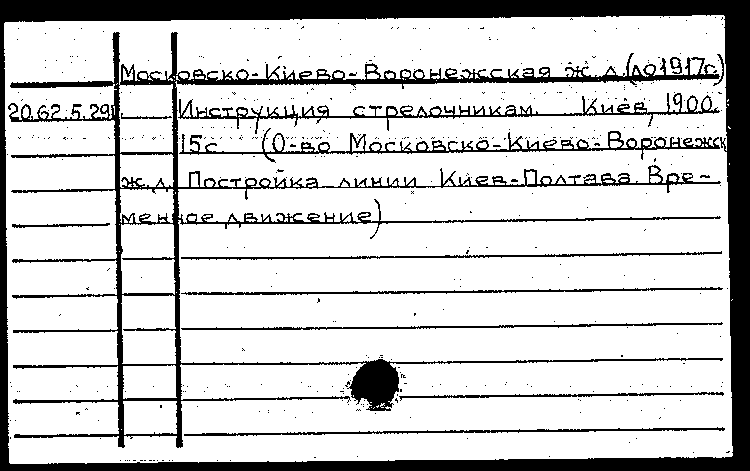 Московско-Киево-Воронежская ж.д.(до1917г.)
20.62.5.291. Инструкция стрелочникам. Киев, 1900.
15с (О-во Московско-Киево-Воронежск
ж.д. Постройка линии Киев-Полтава Вре-
менное движение)